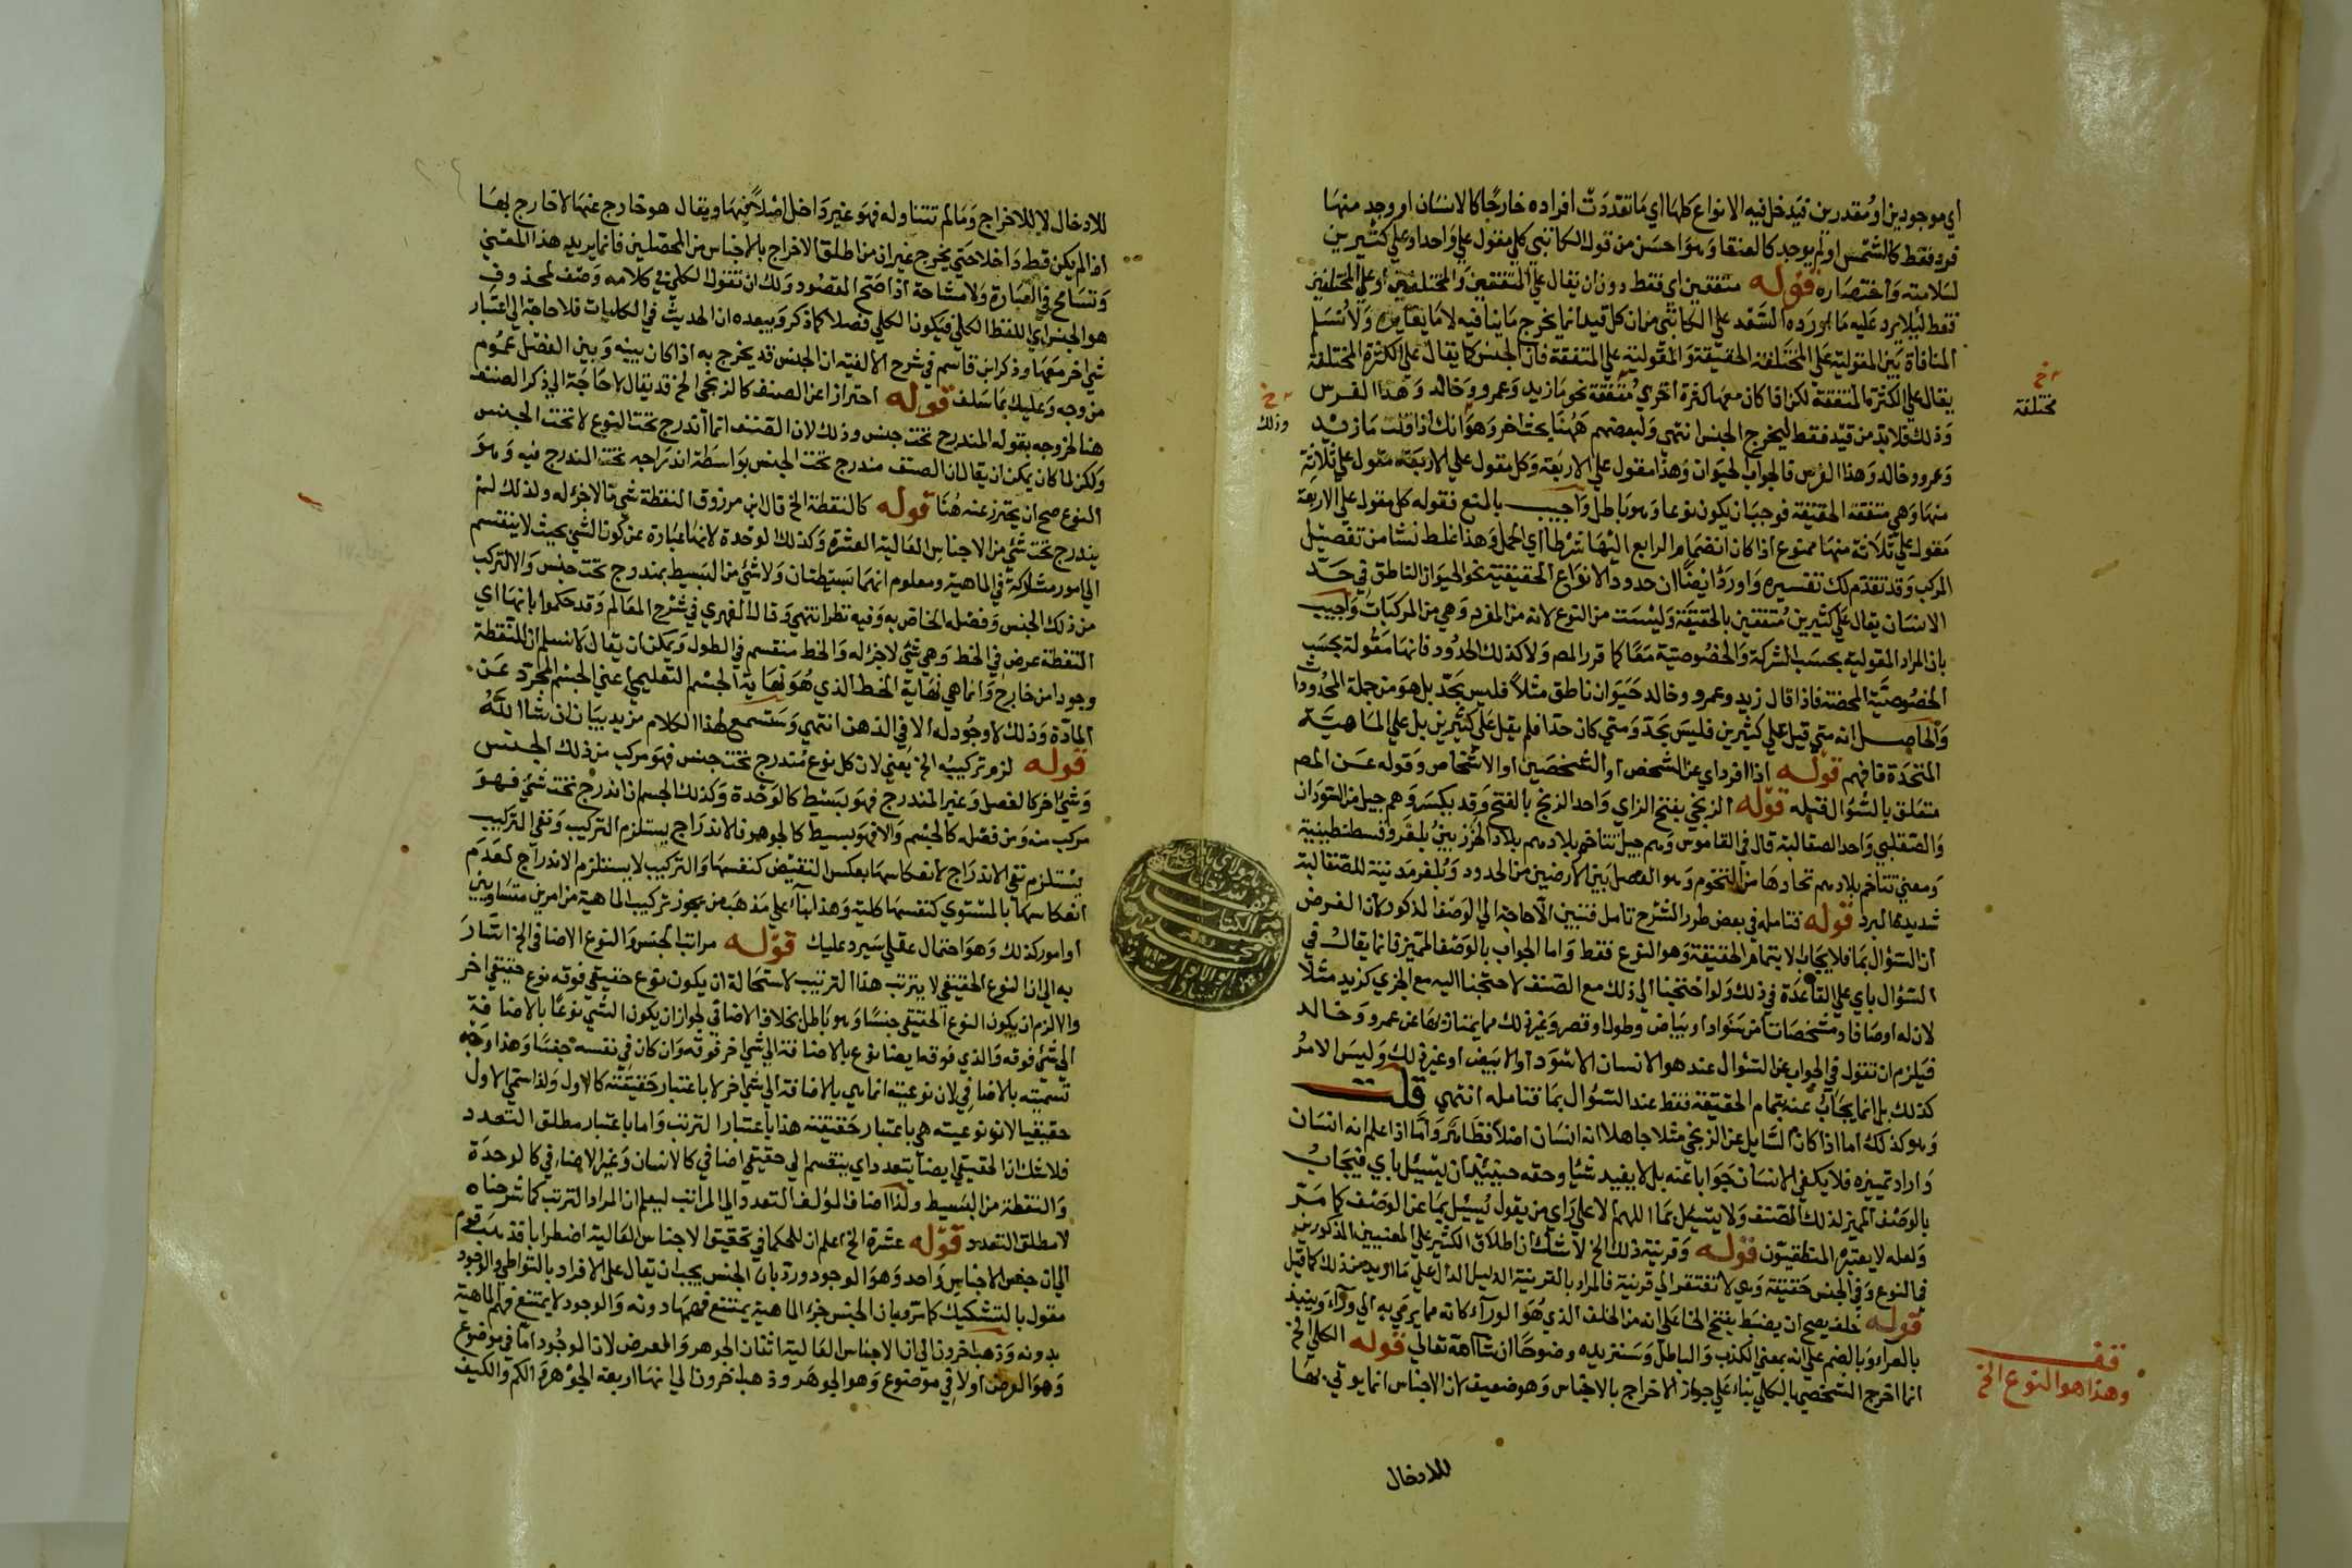 اي موجودين او مقدرين فيدخل فيه الانواع كلها اي ما تعددت افراده خارجا كالانسان او وجد منها
فرد فقط كالشمس او لم يوجد كالعنقا وهو احسن من قول الكاتبي كلي مقول علي واحد او علي كثيرين
لسلامته واختصاره قوله متفقين اي فقط دون ان يقال علي المتفقين والمختلفين او علي المختلفين
فقط ليلا يرد عليه ما اورده السعد علي الكاتبي من ان كل قيد انما يخرج ما ينافيه لا ما يغايره ولا نسلم
المنافاة بين المقولية علي المختلفة الحقيقة والمقولية علي المتفقة فان الجنس كما يقال علي الكثرة المختلفة
يقال علي الكثرة المتفقة لكن اذا كان معها كثرة اخري متفقة نحو ما زيد وعمرو وخالد وهذا الفرس
وذلك فلا بد من قيد فقط ليخرج الجنس انتهي ولبعضهم ههنا بحث اخر وهو انك اذا قلت ما زيد
وعمرو وخالد وهذا الفرس فالجواب الحيوان وهذا مقول علي الاربعة وكل مقول علي الاربعة مقول علي ثلاثة
منها وهي متفقة الحقيقة فوجب ان يكون نوعا وهو باطل واجيب بالمنع فقوله كل مقول علي الاربعة
مقول علي ثلاثة منها ممنوع اذا كان انضمام الرابع اليها شرطا اي الحمل وهذا غلط نشا من تفصيل
المركب وقد تقدم لك تفسيره واورد ايضا ان حدود الانواع الحقيقية نحو الحيوان الناطق في حد
الانسان يقال علي كثيرين متفقين بالحقيقة وليست من النوع لانه من المفرد وهي من المركبات واجيب
بان المراد المقولية بحسب الشركة والخصوصية معا كما قرر المص ولا كذلك الحدود فانها مقولة بحسب
الخصوصية المحضة فاذا قال زيد وعمرو وخالد حيوان ناطق مثلا فليس بحد بل هو من جملة المحدودات
والحاصل انه متي قيل علي كثيرين فليس بحد ومتي كان حدا فلم يقل علي كثيرين بل علي الماهية
المتحدة فافهم قوله اذا افرد اي عن الشخص او الشخصين او الاشخاص وقوله عن المص
متعلق بالسؤال قبله قوله الزنجي بفتح الزاي واحد الزنج بالفتح وقد يكسر وهم جيل من السودان
والصقلبي واحد الصقالبة قال في القاموس وهم جيل تتاخم بلادهم بلاد الخزر بين بلغر وقسطنطينية
ومعني تتاخم بلادهم تحادها من التخوم وهو الفصل بين الارضين من الحدود وبلغر مدينة للصقالبة
شديدة البرد قوله فتامله في بعض طرر الشرح تامل فتبين الا حاجة الي الوصف المذكور لان الفرض
ان السؤال بما فلا يجاب الا بتمام الحقيقة وهو النوع فقط واما الجواب بالوصف المميز فانما يقال في
السؤال باي علي القاعدة في ذلك ولو احتجنا الي ذلك مع الصنف لاحتجنا اليه مع الجزي كزيد مثلا
لان له اوصافا ومشخصات من سواد او بياض وطول او قصر وغير ذلك مما يمتاز بها عن عمرو وخالد
فيلزم ان تقول في الجواب عن السؤال عنه هو الانسان الاسود او الابيض او غير ذلك وليس الامر
كذلك بل انما يجاب عنه بتمام الحقيقة فقط عند السؤال بما فتامله انتهي قلت
وهو كذلك اما اذا كان السايل عن الزنجي مثلا جاهلا انه انسان اصلا فظاهر واما اذا علم انه انسان
واراد تمييزه فلا يكفي الانسان جوابا عنه بل لا يفيد شيا وحقه حينئذ ان يسئل باي فيجاب
بالوصف المميز لذلك الصنف ولا يسئل بما اللهم الا علي راي من يقول يسئل بما عن الوصف كما مر
ولعله لا يعتبره المنطقيون قوله وقرينة ذلك الخ لا شك ان اطلاق الكثير علي المعنيين المذكورين
في النوع وفي الجنس حقيقة وهي لا تفتقر الي قرينة فالمراد بالقرينة الدليل الدال علي ما اريد من ذلك كما قيل
قوله خلف يصح ان يضبط بفتح الخا علي انه من الخلف الذي هو الوراء كانه مما يرمي به الي وراء وينبذ
بالعراء وبالضم علي انه بمعني الكذب والباطل وسنزيده وضوحا ان شا الله تعالي قوله الكلي الخ
انما اخرج الشخصي بالكلي بناء علي جواز الاخراج بالاجناس وهو ضعيف لان الاجناس انما يوتي بها
للادخال
خ
مختلفة
خ
وذلك
قف
وهذا هو النوع الخ
للادخال لا للاخراج وما لم تتناوله فهو غير داخل اصلا فيها ويقال هو خارج عنها لا خارج بها
اذ لم يكن قط داخلا حتي يخرج غير ان من اطلق الاخراج بالاجناس من المحصلين فانما يريد هذا المعني
وتسامح في العبارة ولا مشاحة اذا صح المقصود ولك ان تقول الكلي في كلامه وصف لمحذوف
هو الجنس اي اللفظ الكلي فيكون الكلي فصلا كما ذكر ويبعده ان الحديث في الكليات فلا حاجة الي اعتبار
شي اخر معها وذكر ابن قاسم في شرح الالفية ان الجنس قد يخرج به اذا كان بينه وبين الفصل عموم
من وجه وعليك بما سلف قوله احترازا عن الصنف كالزنجي الخ قد يقال لا حاجة الي ذكر الصنف
هنا لخروجه بقوله المندرج تحت جنس وذلك لان الصنف انما اندرج تحت النوع لا تحت الجنس
ولكن لما كان يمكن ان يقال ان الصنف مندرج تحت الجنس بواسطة اندراجه تحت المندرج فيه وهو
النوع صح ان يحترز عنه هنا قوله كالنقطة الخ قال ابن مرزوق النقطة شي ما لا جزء له ولذلك لم
يندرج تحت شي من الاجناس العالية العشرة وكذلك الوحدة لانها عبارة عن كون الشي بحيث لا ينقسم
الي امور مشاركة في الماهية ومعلوم انهما بسيطتان ولا شي من البسيط بمندرج تحت جنس والا لتركب
من ذلك الجنس وفصله الخاص به وفيه نظر انتهي وقال الفهري في شرح المعالم وقد حكموا بانها اي
النقطة عرض في الخط وهي شي لا جزء له والخط منقسم في الطول ويمكن ان يقال لا نسلم ان للنقطة
وجودا من خارج وانما هي نهاية الخط الذي هو نهاية الجسم التعليمي اعني الجسم المجرد عن
المادة وذلك لا وجود له الا في الذهن انتهي وستسمع لهذا الكلام مزيد بيان ان شا الله
قوله لزم تركيبه الخ يعني لان كل نوع مندرج تحت جنس فهو مركب من ذلك الجنس
وشي اخر كالفصل وغير المندرج فهو بسيط كالوحدة وكذلك الجسم ان اندرج تحت شي فهو
مركب منه ومن فصله كالجسم والا فهو بسيط كالجوهر فالاندراج يستلزم التركيب ونفي التركيب
يستلزم نفي الاندراج لانعكاسها بعكس النقيض كنفسها والتركيب لا يستلزم الاندراج لعدم
انعكاسها بالمستوي كنفسها كلية وهذا بناء علي مذهب من يجوز تركيب الماهية من امرين متساويين
او امور كذلك وهو احتمال عقلي سيرد عليك قوله مراتب الجنس والنوع الاضافي الخ اشار
به الي ان النوع الحقيقي لا يترتب هذا الترتيب لاستحالة ان يكون نوع حقيقي فوقه نوع حقيقي اخر
والا لزم ان يكون النوع الحقيقي جنسا وهو باطل بخلاف الاضافي لجواز ان يكون الشي نوعا بالاضافة
الي شي فوقه والذي فوقه ايضا نوع بالاضافة الي شي اخر فوقه وان كان في نفسه جنسا وهذا وجه
تسميته بالاضافي لان نوعيته انما هي بالاضافة الي شي اخر لا باعتبار حقيقته كالاول ولذا سمي الاول
حقيقيا لان نوعيته هي باعتبار حقيقته هذا باعتبار الترتب واما باعتبار مطلق التعدد
فلا شك ان الحقيقي ايضا يتعدد اي ينقسم الي حقيقي اضافي كالانسان وغير الاضافي كالوحدة
والنقطة من البسيط ولذا اضاف المؤلف التعدد الي المراتب ليعلم ان المراد الترتب كما شرحناه
لا مطلق التعدد قوله عشرة الخ اعلم ان للحكما في تحقيق الاجناس العالية اضطرابا فذهب قوم
الي ان جنس الاجناس واحد وهو الوجود ورد بان الجنس يجب ان يقال علي الافراد بالتواطي والوجود
مقول بالتشكيك كما مر وبان الجنس جزء الماهية يمتنع فهمها دونه والوجود لا يمتنع فهم الماهية
بدونه وذهب اخرون الي ان الاجناس العالية اثنان الجوهر والعرض لان الموجود اما في موضوع
وهو العرض او لا في موضوع وهو الجوهر وذهب اخرون الي انها اربعة الجوهر والكم والكيف